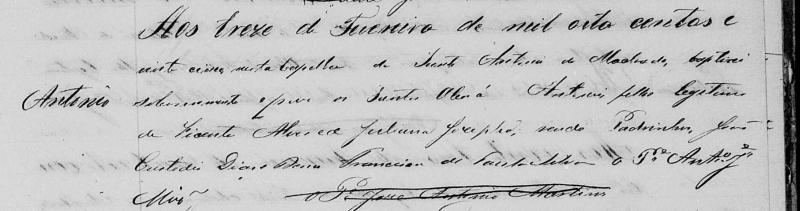 Aos treze d Janeiro de mil oito centos e
vinte cinco nesta Capella de Santo Antonio do Machado, baptizei
Antonio
solemnemente e puz os Santos Oleos á Antonio filho legitimo
de Vicente Alves e Juliana Josepha, sendo Padrinhos, João
Custodio Dias e Dona Francisca de o Pe Anto Je
o Pe Jose Antonio Martins